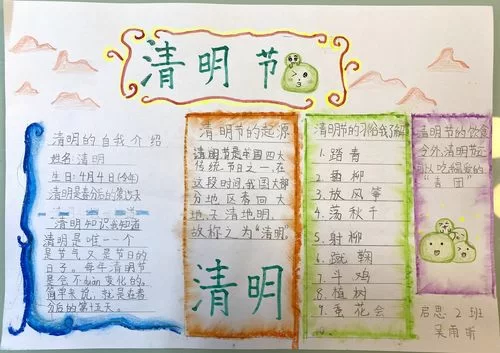 清明节
清明的自我介绍
姓名:清明
生日:4月4日(今年)
清明是春分后的天
清明知识我知道
清明是唯一一个
是节气又是节日的
日子。每年清明节
是会不duàn变化的。
简单来说，就是在春
分后的第十五天。
清明节的起源
清明节是中国四大
传统节日之一。在
这段时间,我国大部
分地区春回大
地,天清地明。
故称之为“清明”。
清明
清明节的习俗我了解
1.踏青
2.插柳
3.放风筝
4.荡秋千
5.射柳
6.蹴鞠
7.牛鸡
8.植树
9.蚕花会
清明节的饮食
今外,清明节还
可以吃的
“青团”
启思2班
吴雨昕